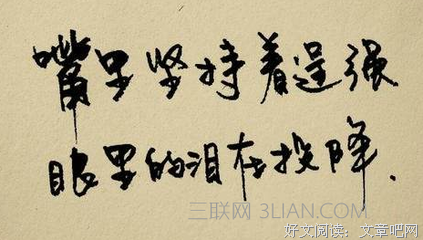 嘴里坚持着逞强
眼里的泪在投降.
三联网 3LIAN.COM
好文阅读：文章吧网